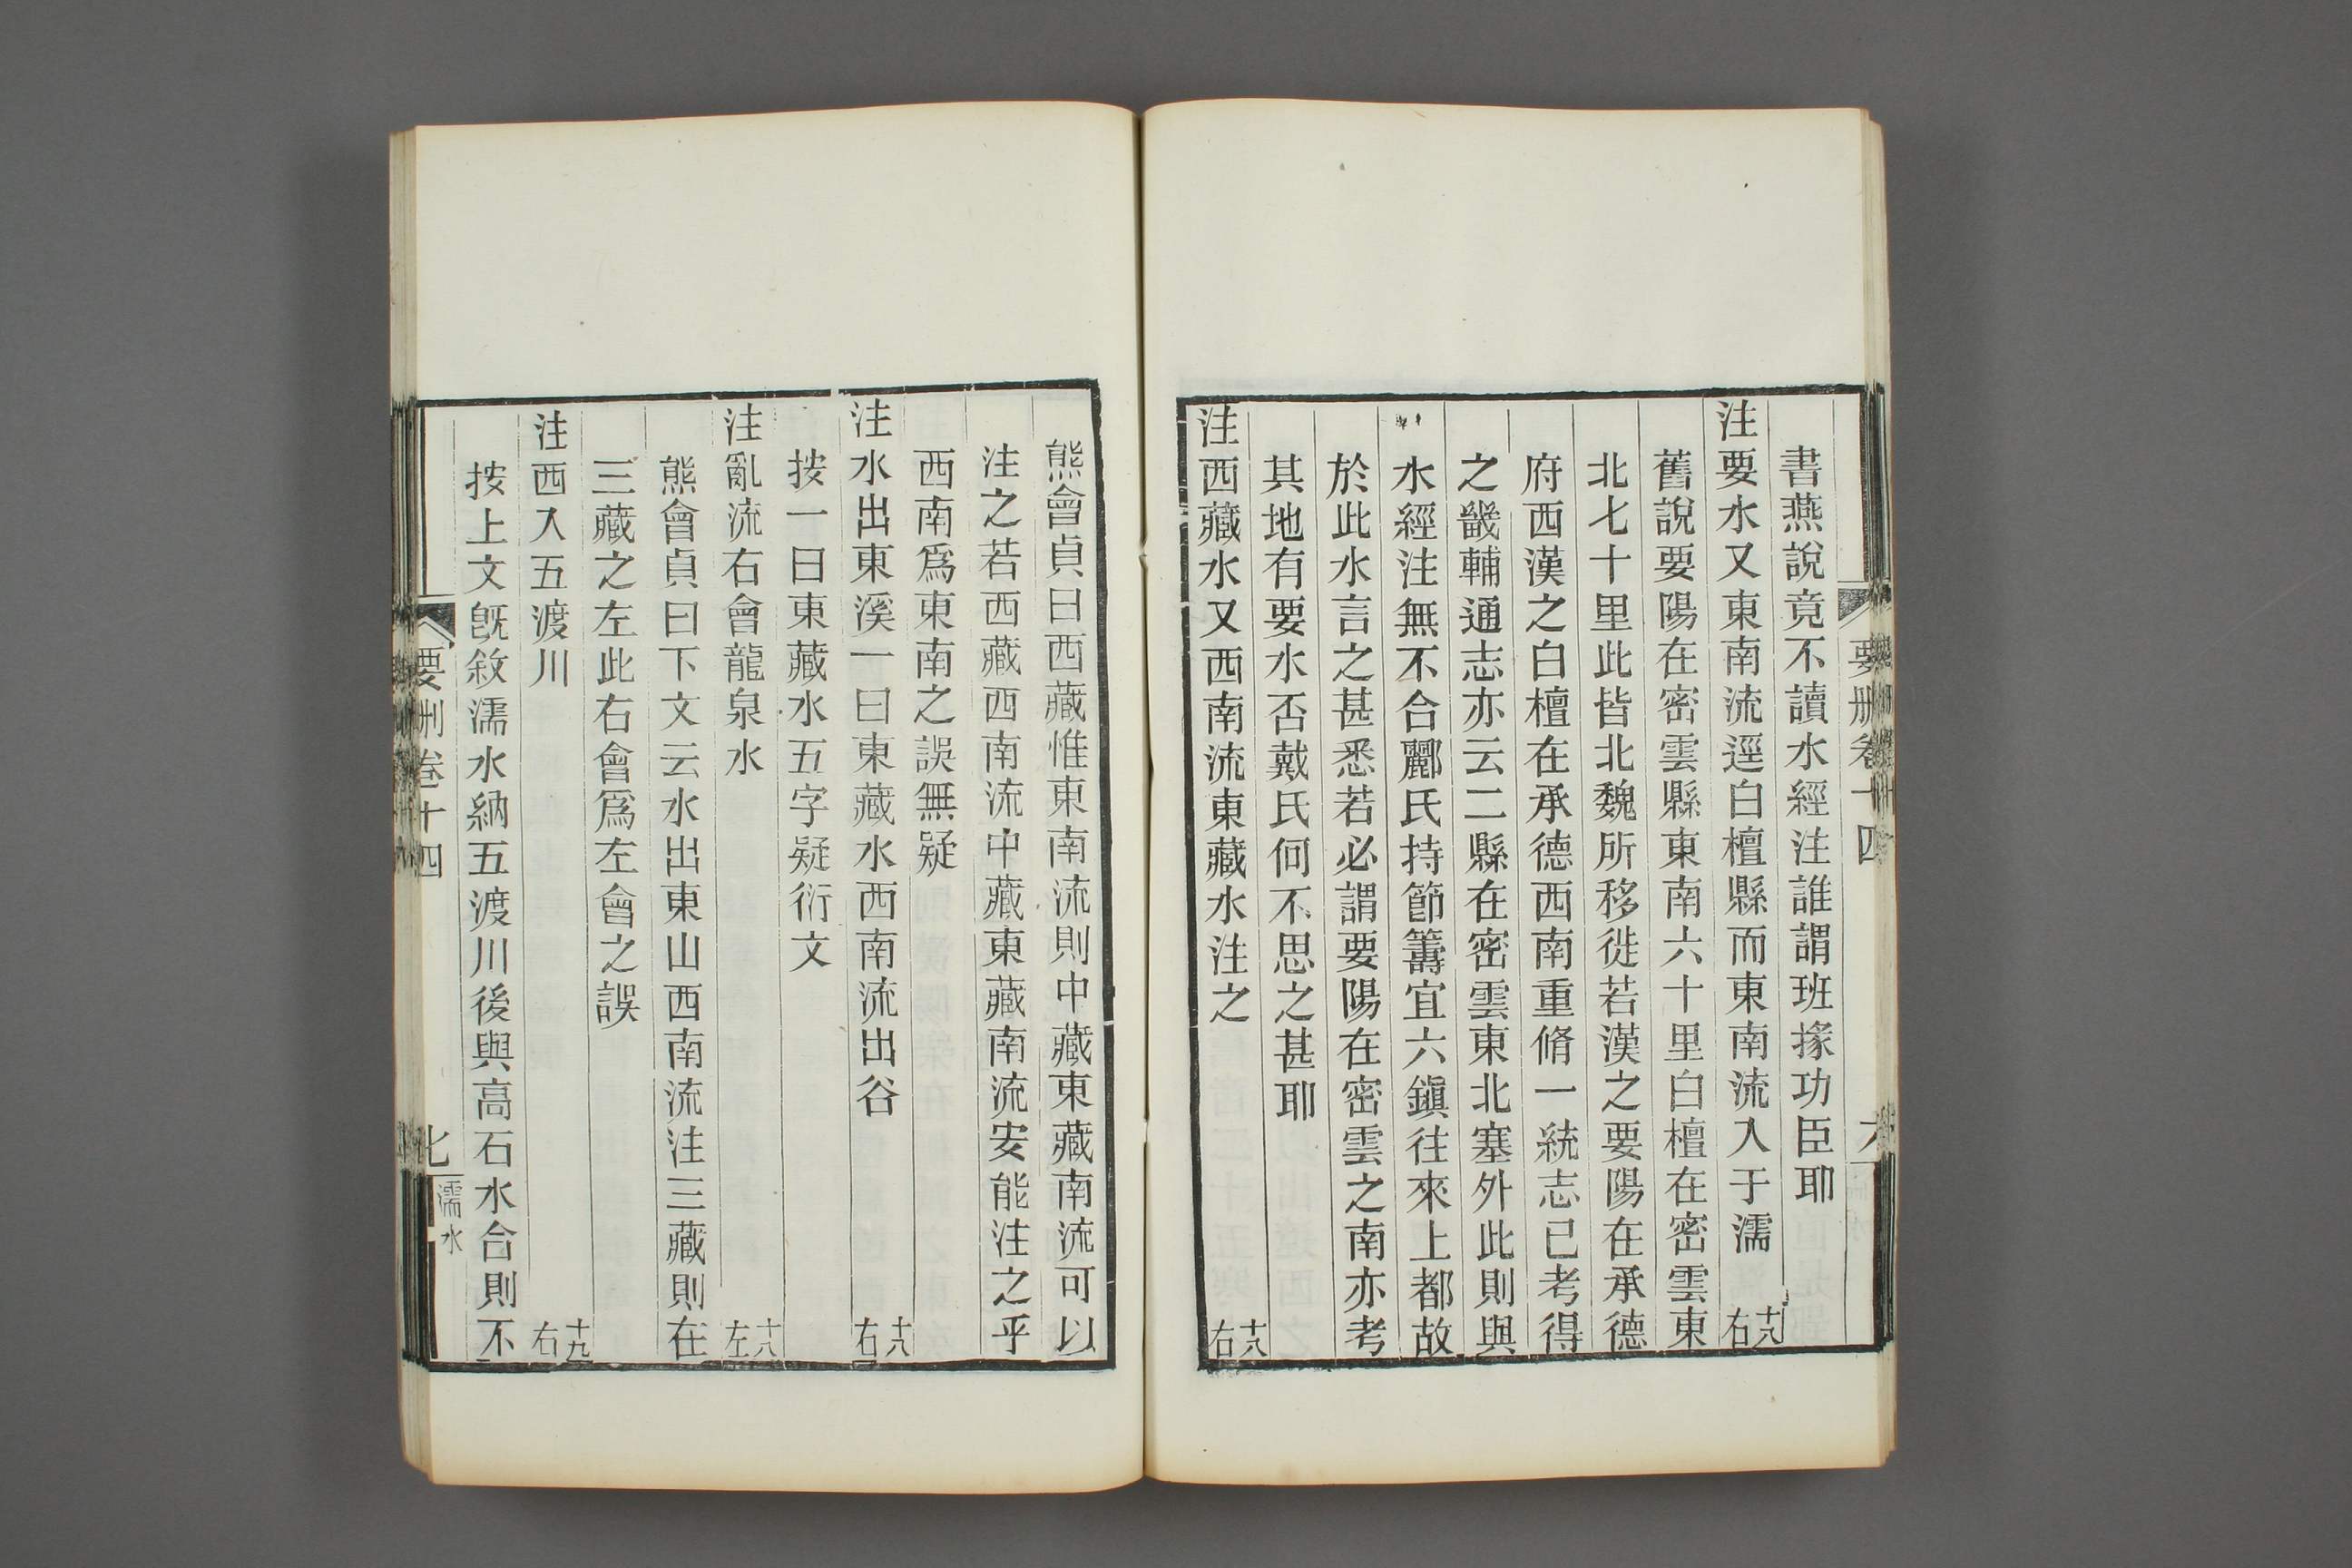 要刪卷十四
書燕說竟不讀水經注誰謂班掾功臣耶
注要水又東南流逕白檀縣而東南流入于濡 十八右
舊說要陽在密雲縣東南六十里白檀在密雲東
北七十里此皆北魏所移徙若漢之要陽在承德
府西漢之白檀在承德西南重脩一統志已考得
之畿輔通志亦云二縣在密雲東北塞外此則與
水經注無不合酈氏持節籌宜六鎭往來上都故
於此水言之甚悉若必謂要陽在密雲之南亦考
其地有要水否戴氏何不思之甚耶
注西藏水又西南流東藏水注之 十八右
熊會貞曰西藏惟東南流則中藏東藏南流可以
注之若西藏西南流中藏東藏南流安能注之乎
西南爲東南之誤無疑
注水出東溪一曰東藏水西南流出谷 十八右
按一曰東藏水五字疑衍文
注亂流右會龍泉水 十八左
熊會貞曰下文云水出東山西南流注三藏則在
三藏之左此右會爲左會之誤
注西入五渡川 十九右
按上文旣敘濡水納五渡川後與高石水合則不
要刪卷十四 七 濡水